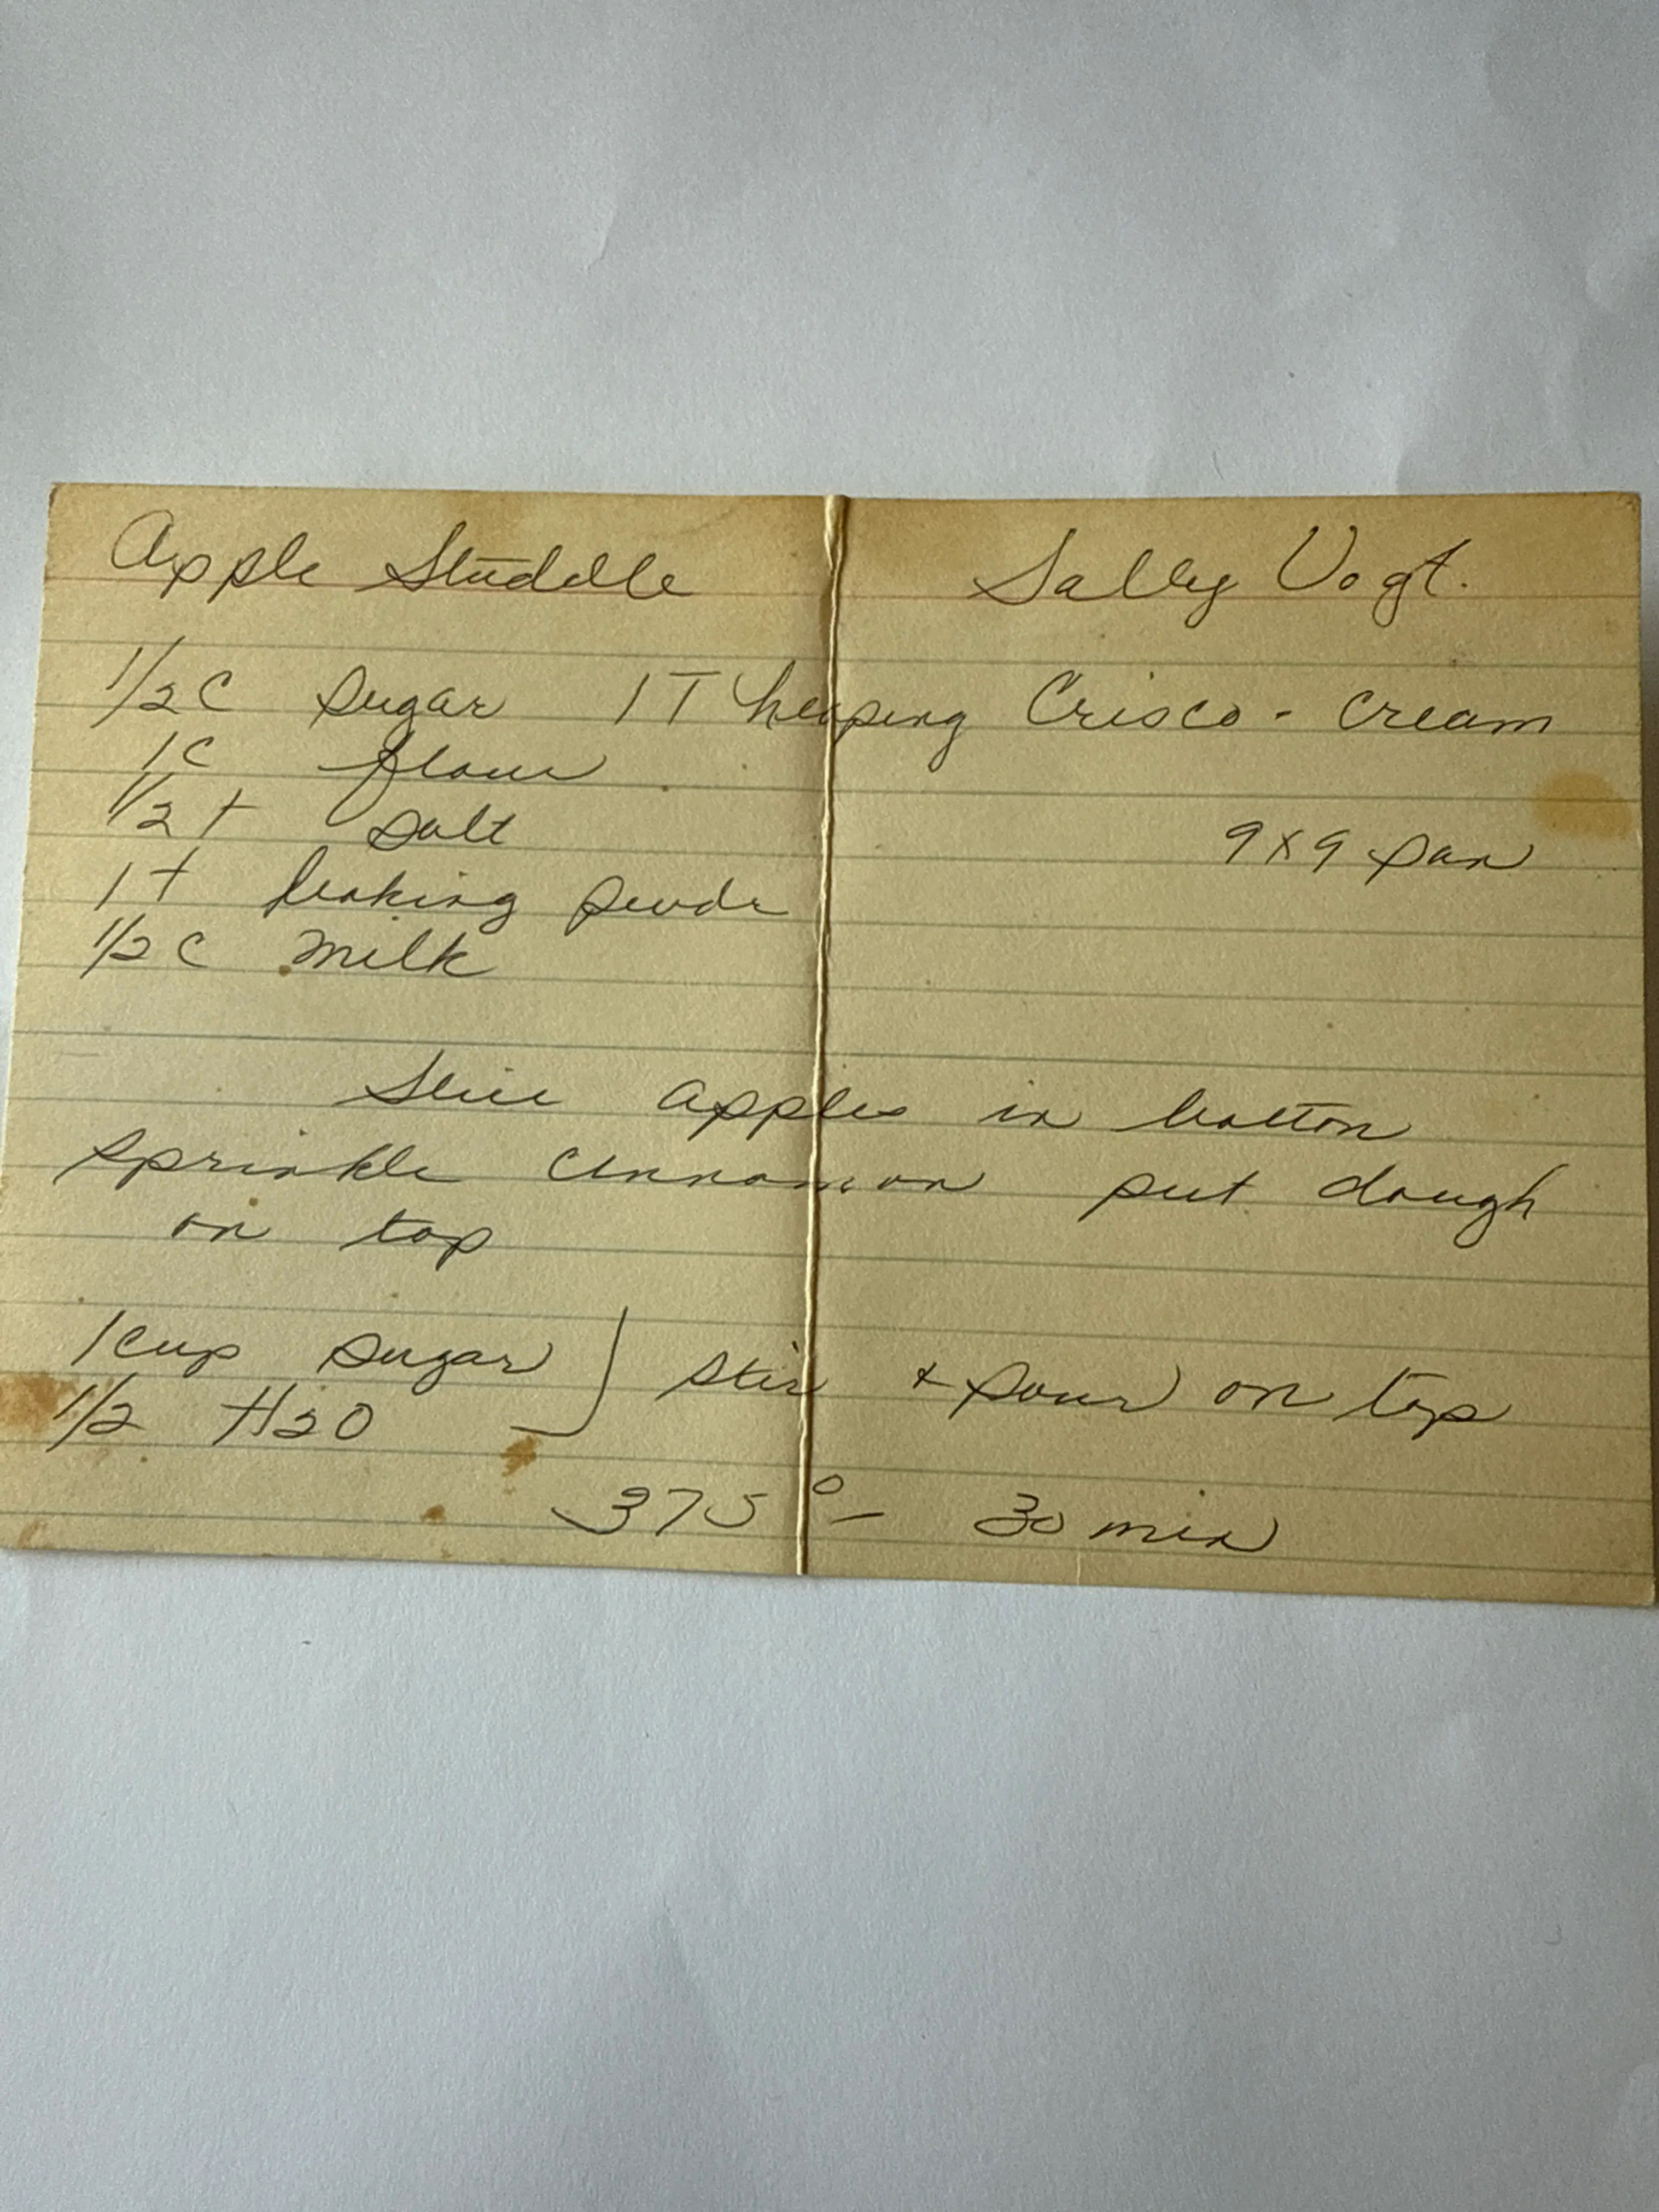 Apple Studdle Sally Vogt.
1/2 C sugar 1 T heaping Crisco - cream
1 C flour
1/2 t salt
9 x 9 pan
1 t baking powdr
1/2 C milk
Slice apples in bottom
sprinkle cinnamon put dough
on top
1 cup sugar } stir + pour on top
1/2 H2O
375° - 30 min